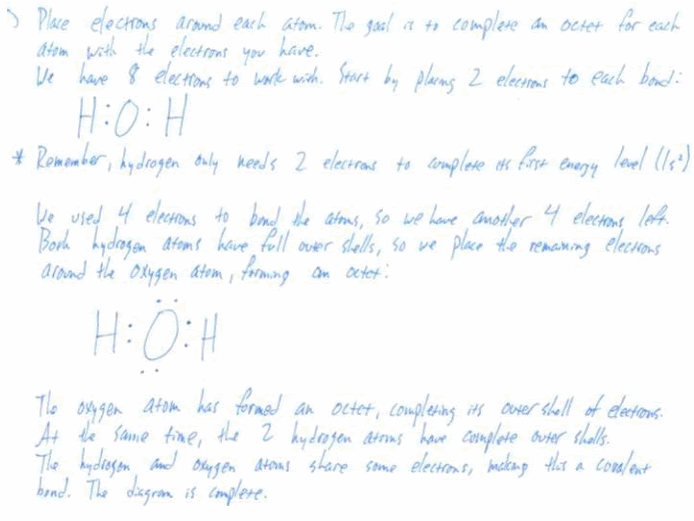 ) Place electrons around each atom. The goal is to complete an octet for each
atom with the electrons you have.
We have 8 electrons to work with. Start by placing 2 electrons to each bond:
H:O:H
* Remember, hydrogen only needs 2 electrons to complete its first energy level (1s²)
We used 4 electrons to bond the atoms, so we have another 4 electrons left.
Both hydrogen atoms have full outer shells, so we place the remaining electrons
around the oxygen atom, forming an octet:
H:O:H
The oxygen atom has formed an octet, completing its outer shell of electrons.
At the same time, the 2 hydrogen atoms have complete outer shells.
The hydrogen and oxygen atoms share some electrons, making this a covalent
bond. The diagram is complete.